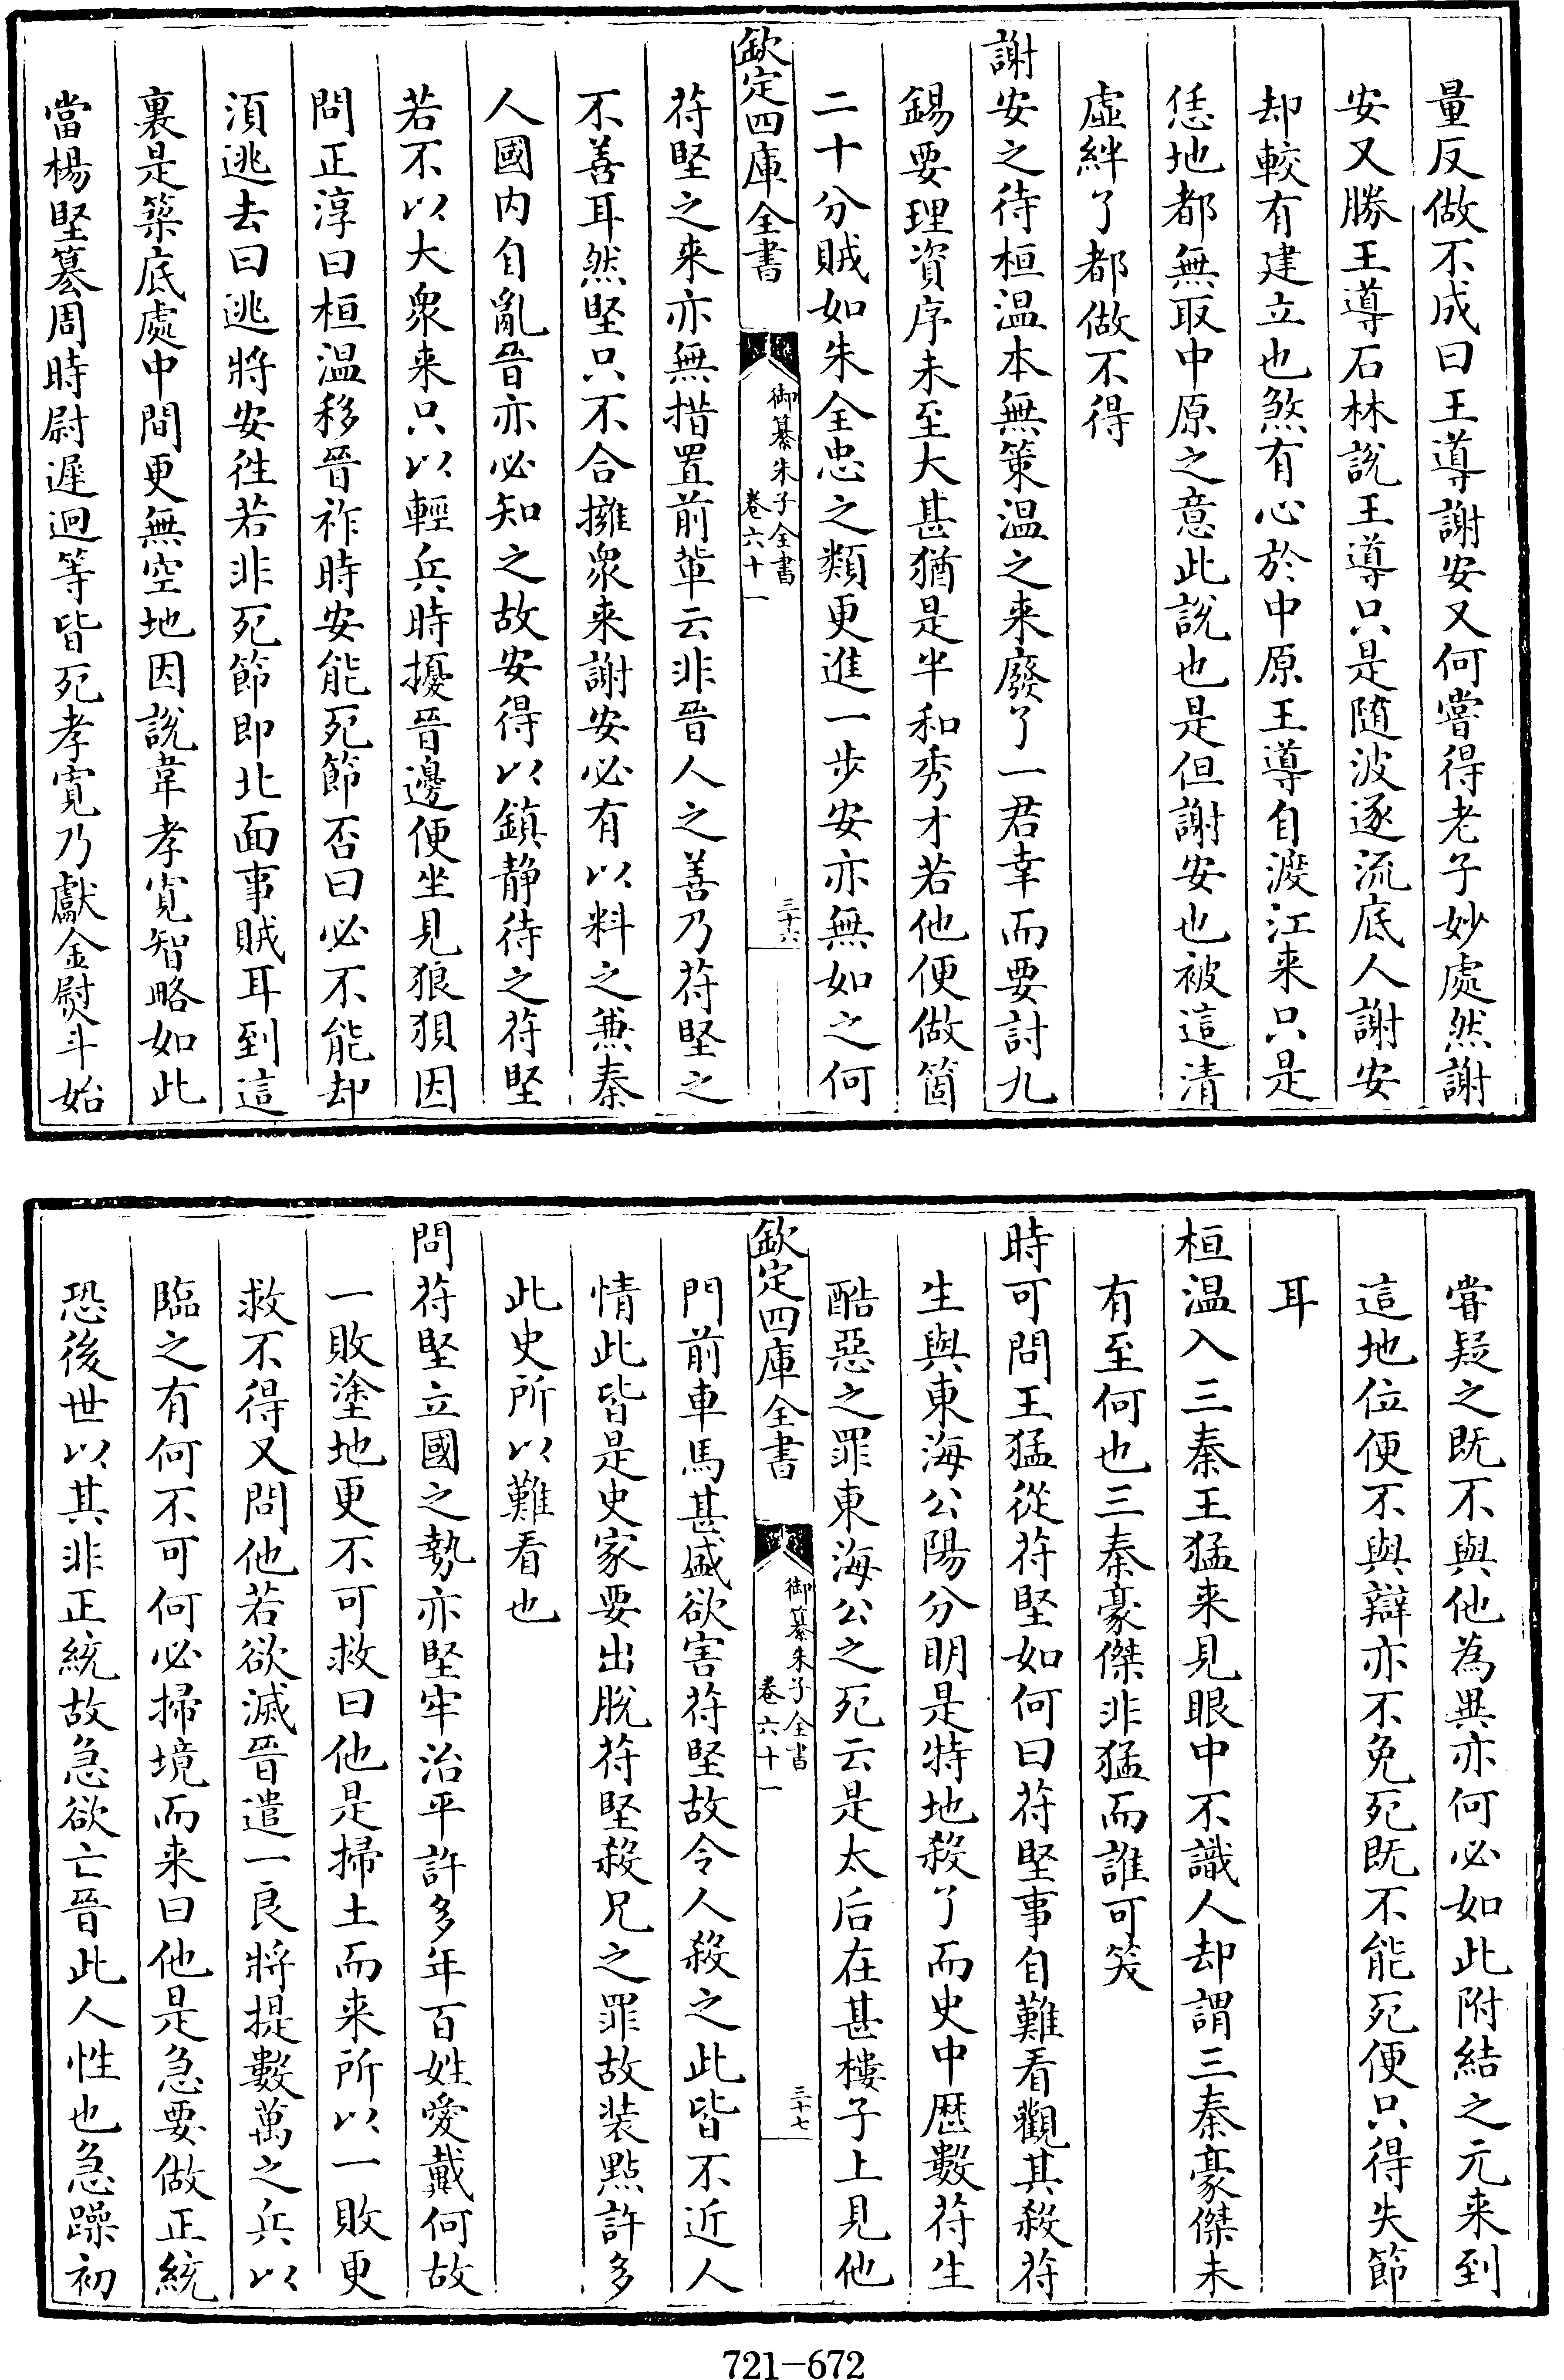 量反做不成曰王導謝安又何嘗得老子妙處然謝
安又勝王導石林說王導只是随波逐流底人謝安
却較有建立也煞有心於中原王導自渡江来只是
恁地都無取中原之意此說也是但謝安也被這清
虛絆了都做不得
謝安之待桓温本無策温之来廢了一君幸而要討九
錫要理資序未至大甚猶是半和秀才若他便做箇
二十分賊如朱全忠之類更進一步安亦無如之何
欽定四庫全書
御纂朱子全書
卷六十一
三十六
苻堅之来亦無措置前輩云非晉人之善乃苻堅之
不善耳然堅只不合擁衆来謝安必有以料之兼秦
人國内自亂晉亦必知之故安得以鎮静待之苻堅
若不以大衆来只以輕兵時擾晉邊便坐見狼狽因
問正淳曰桓温移晉祚時安能死節否曰必不能却
湏逃去曰逃將安徃若非死節即北面事賊耳到這
裏是築底處中間更無空地因說韋孝寛智略如此
當楊堅簒周時尉遲迥等皆死孝寛乃獻金熨斗始
嘗疑之既不與他為異亦何必如此附結之元来到
這地位便不與辯亦不免死既不能死便只得失節
耳
桓温入三秦王猛来見眼中不識人却謂三秦豪傑未
有至何也三秦豪傑非猛而誰可笑
時可問王猛從苻堅如何曰苻堅事自難看觀其殺苻
生與東海公陽分明是特地殺了而史中歴數苻生
酷惡之罪東海公之死云是太后在甚樓子上見他
欽定四庫全書
御纂朱子全書
卷六十一
三十七
門前車馬甚盛欲害苻堅故令人殺之此皆不近人
情此皆是史家要出脱苻堅殺兄之罪故装點許多
此史所以難看也
問苻堅立國之勢亦堅牢治平許多年百姓愛戴何故
一敗塗地更不可救曰他是掃土而来所以一敗更
救不得又問他若欲滅晉遣一良將提數萬之兵以
臨之有何不可何必掃境而来曰他是急要做正統
恐後世以其非正統故急欲亡晉此人性也急躁初
721-672